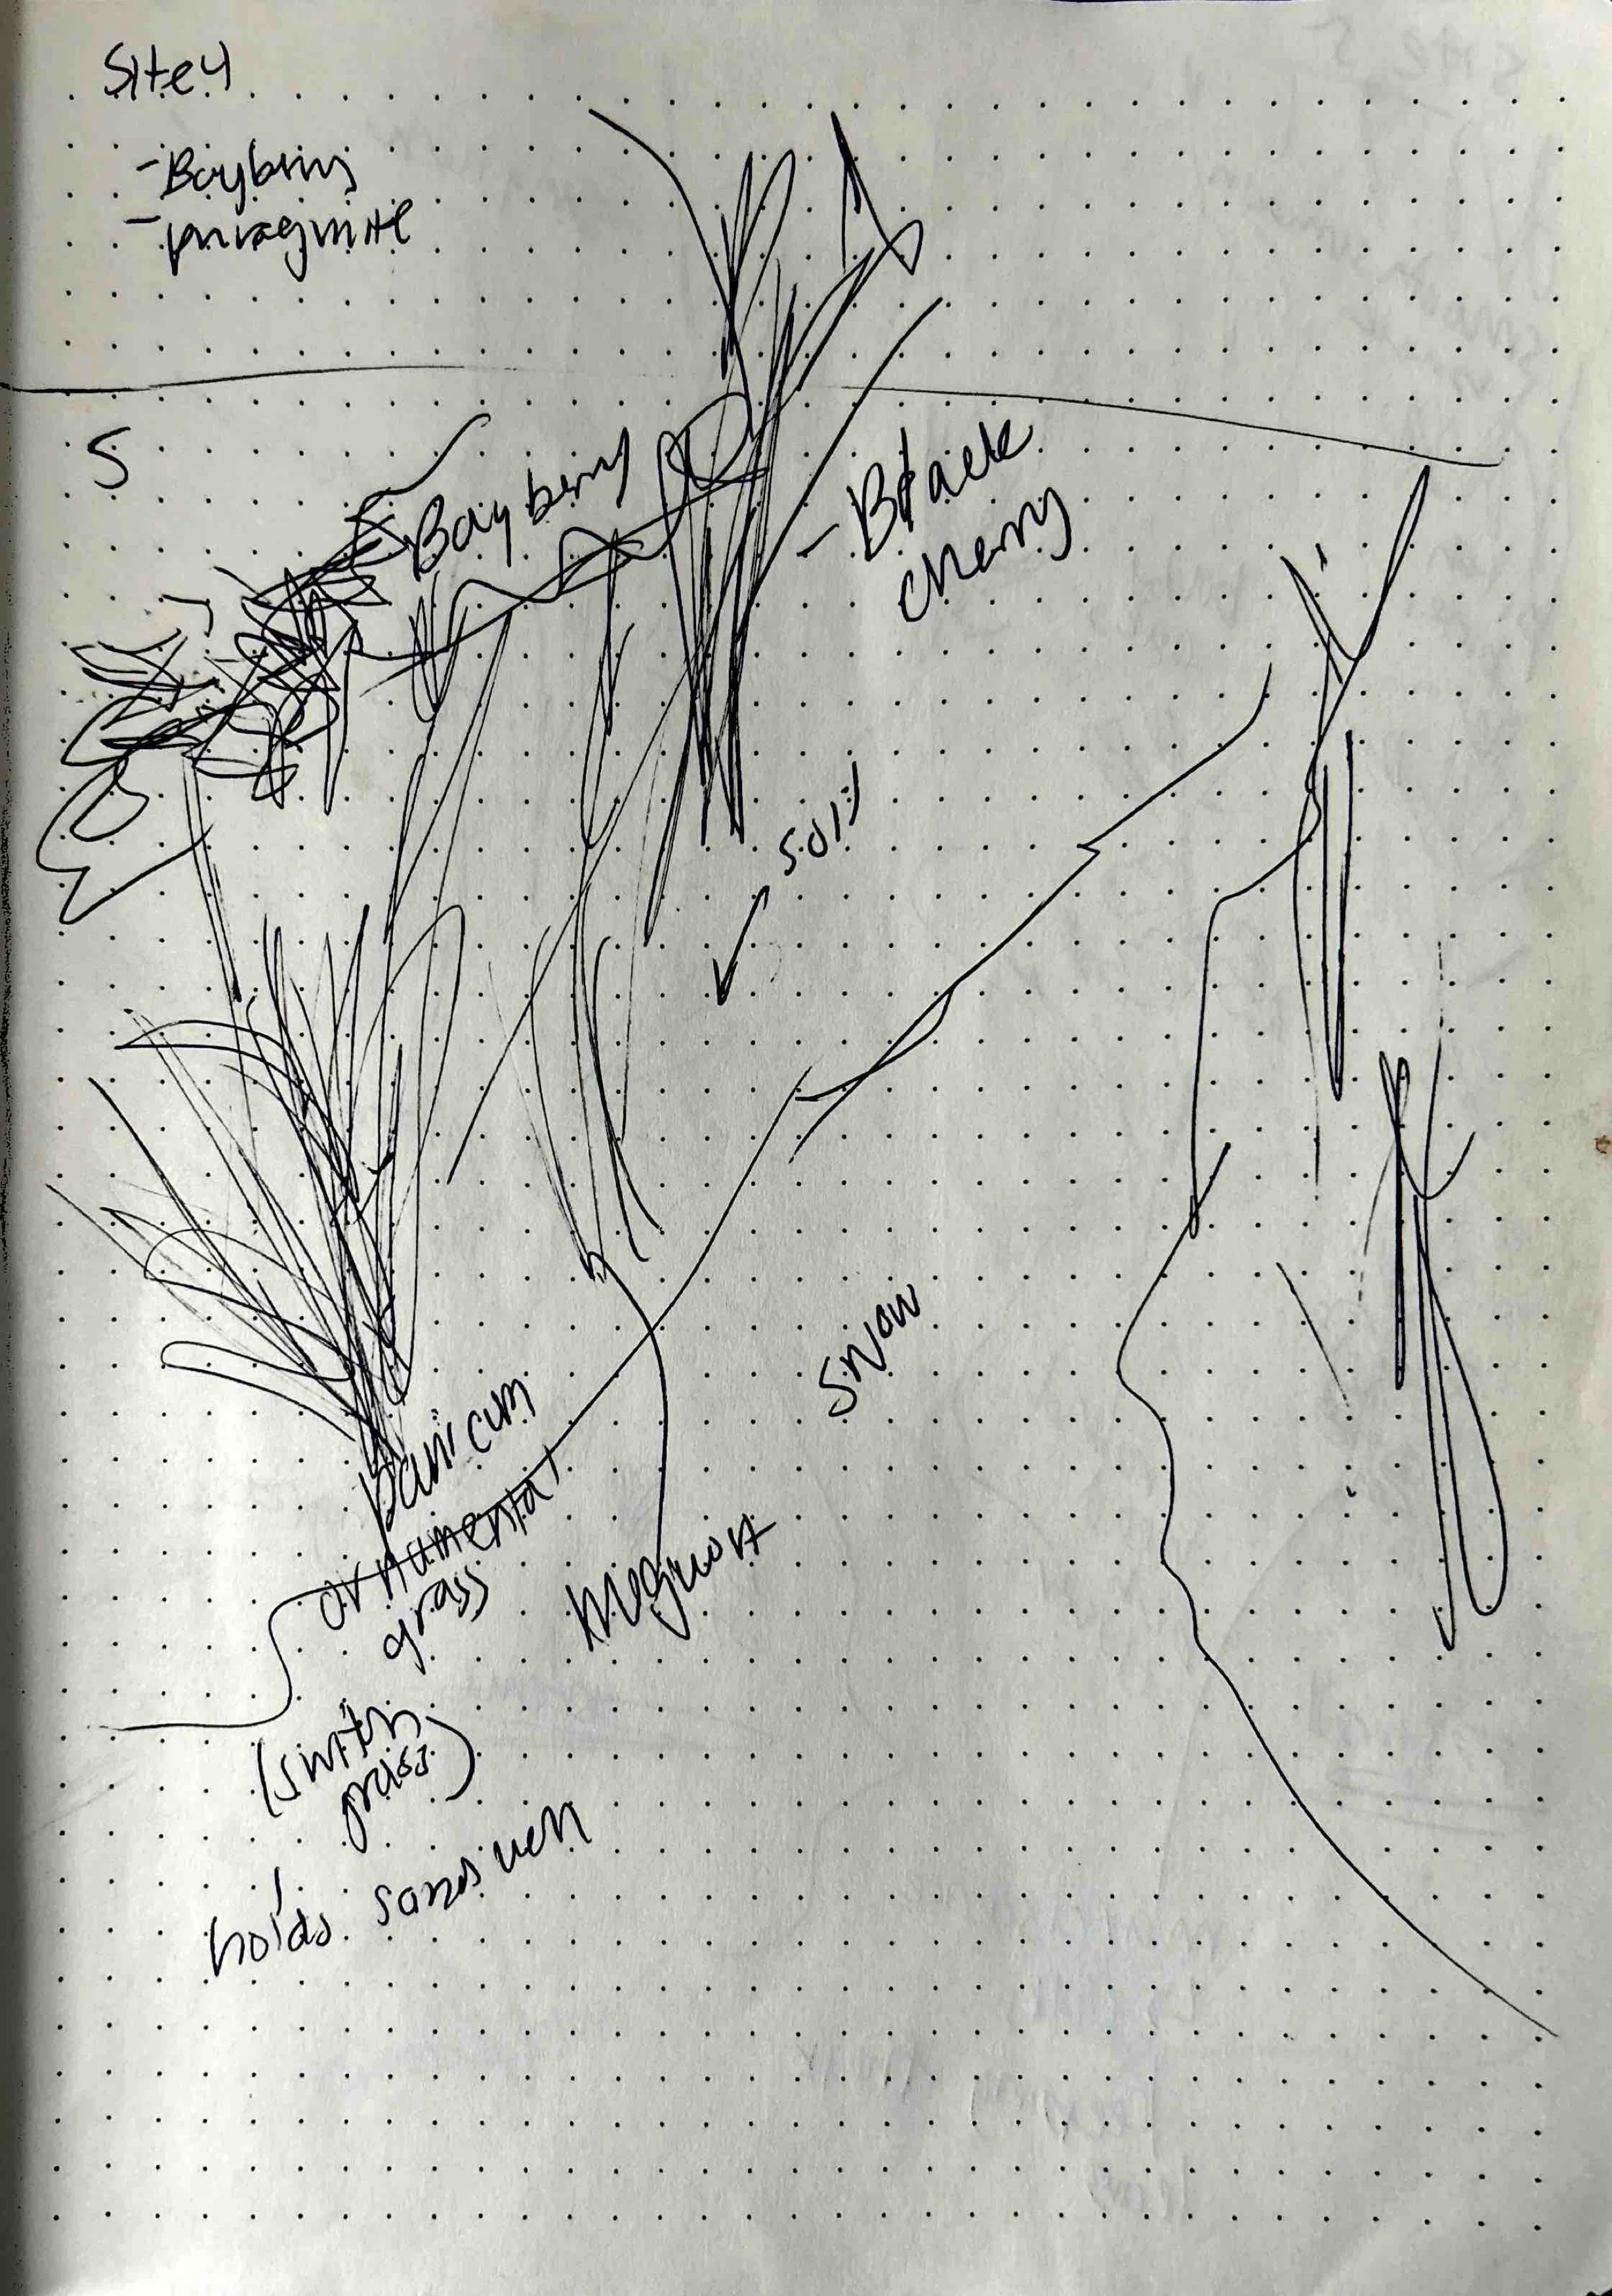 Site 4
- Bayberry
- phragmite
S
Bayberry
- Black
cherry
soil
snow
panicum
ornamental
grass
mugwort
(switch
grass)
holds sands well